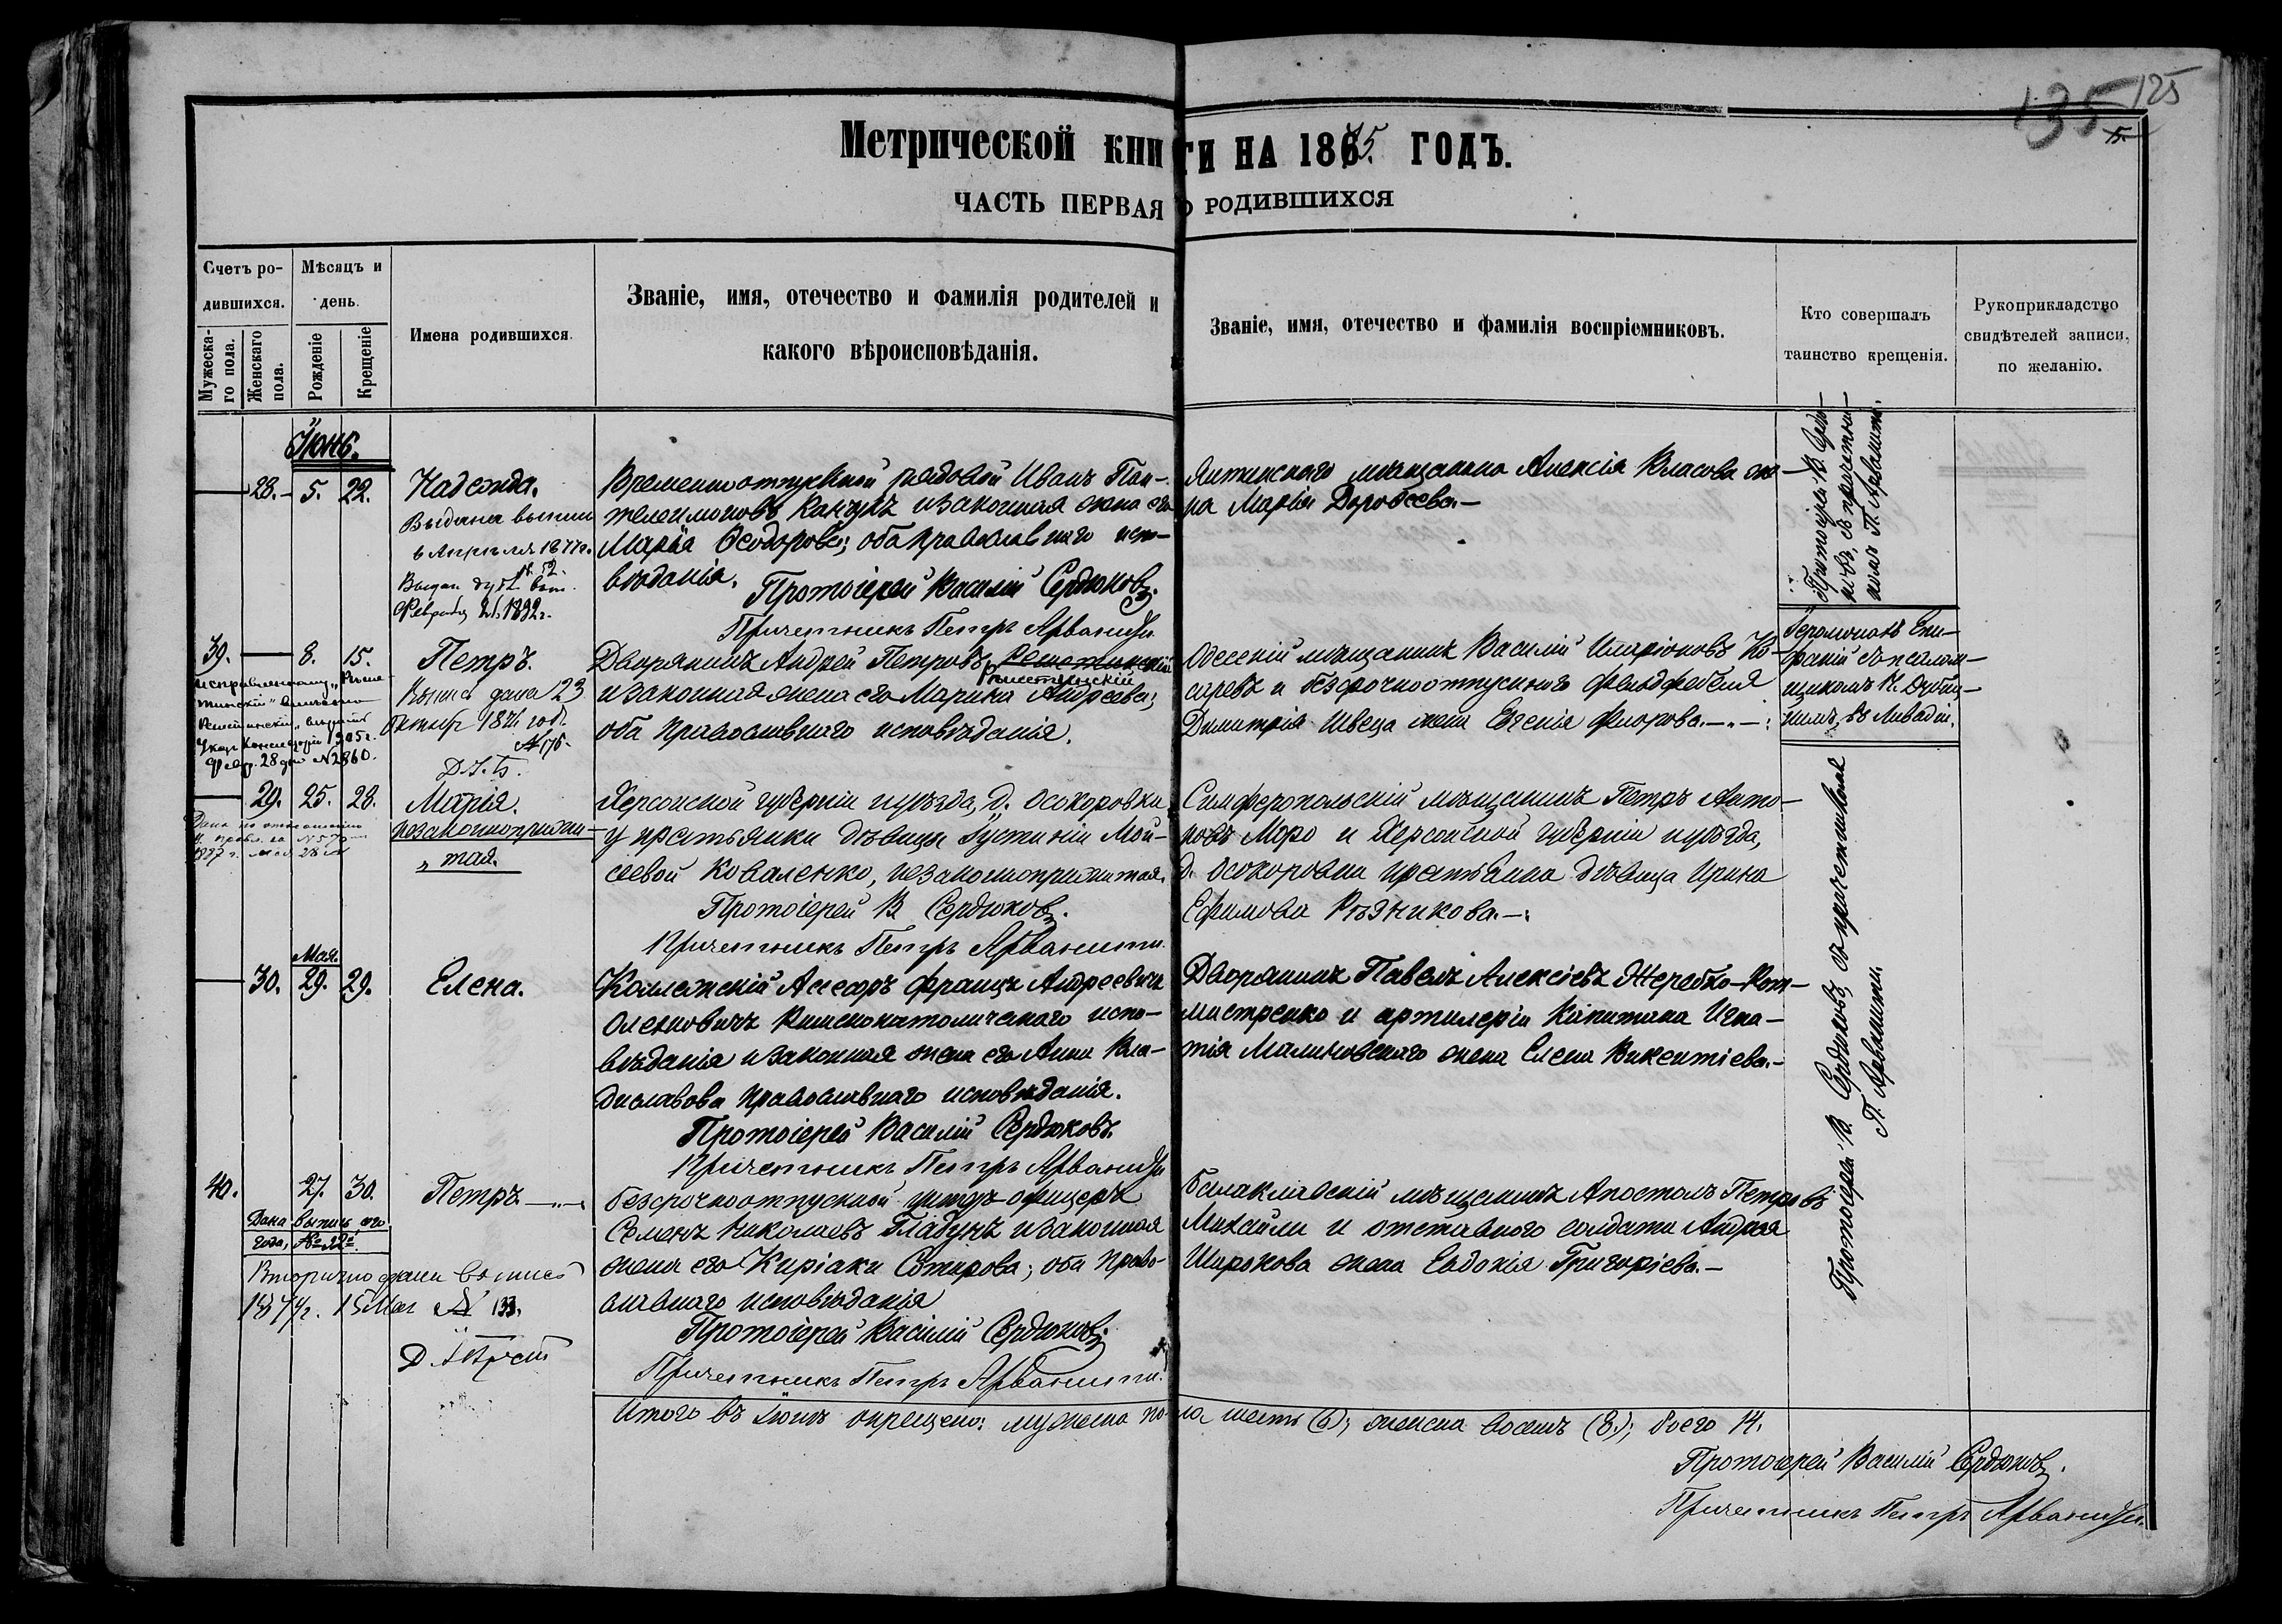 135 125
15.
Метрической книги на 1875. годъ.
Часть первая о родившихся
Счетъ родившихся.
Мѣсяцъ и день.
Мужескаго пола.
Женскаго пола.
Рожденіе
Крещеніе
Имена родившихся.
Званіе, имя, отечество и фамилія родителей и какого вѣроисповѣданія.
Званіе, имя, отечество и фамилія воспріемниковъ.
Кто совершалъ таинство крещенія.
Рукоприкладство свидѣтелей записи, по желанію.
Іюнь.
28. 5. 22.
Надежда.
Выдана выпись
6 Апрѣля 1877г.
№ 52.
Февраля 21. 1892г.
Временноотпускной рядовой Иванъ Пан-
телеимоновъ Канчукъ и законная жена его
Марія Ѳеодорова; оба православнаго испо-
вѣданія.
Протоіерей Василій Сердюковъ.
Причетникъ Петръ Арваниди
Ялтинскаго мѣщанина Алексія Власова же-
на Марія Дороѳеева.
Протоіерей В. Сердю-
ковъ, съ причетни-
комъ П. Арванити.
39. 8. 15.
Петръ.
Выпись дана 23
Октября 187 год.
№ 176.
Указ Консисторіи 1905г.
Февр. 28 дня №2860.
Дворянинъ Андрей Петровъ
и законная жена его Марина Андреева;
оба православнаго исповѣданія.
Одесскій мѣщанинъ Василій Иларіоновъ Ко-
саревъ и безсрочноотпускнаго фельдфебеля
Димитрія Швеца жена Евгенія Флорова.
Іеромонахъ Епи-
фаній съ псалом-
щикомъ Н. Дуби-
нымъ, въ Ливадіи.
29. 25. 28.
Марія.
незаконноприжи-
тая.
Херсонской губерніи и уѣзда, д. Осокоровки
у крестьянки дѣвицы Іустиніи Мой-
сеевой Коваленко, незаконноприжитая.
Протоіерей В Сердюковъ.
Причетникъ Петръ Арванити.
Симферопольскій мѣщанинъ Петръ Анто-
новъ Моро и Херсонской губерніи и уѣзда,
д. Осокоровки крестьянка дѣвица Ирина
Ефимова Рѣзникова.
Мая.
30. 29. 29.
Елена.
Коллежскій Асесоръ Францъ Андреевичъ
Оленовичъ Римскокатолическаго испо-
вѣданія и законная жена его Анна Вла-
диславова Православнаго исповѣданія.
Протоіерей Василій Сердюковъ.
Причетникъ Петръ Арваниди
Дворянинъ Павелъ Алексіевъ Жеребко-Рот-
мистренко и артилеріи Капитана Игна-
тія Малиновскаго жена Елена Викентіева.
Протоіерей В. Сердюковъ, съ причетникомъ
П. Арванити.
40. 27. 30.
Петръ.
Дана выпись сего
года, №
Вторично дана выпись
1877г. 15 Мая № 133.
Безсрочноотпускной унтеръ-офицеръ
Семенъ Николаевъ Гладунъ и законная
жена его Киріаки Сотирова; оба право-
славнаго исповѣданія
Протоіерей Василій Сердюковъ.
Причетникъ Петръ Арванити.
Балаклавскій мѣщанинъ Апостолъ Петровъ
Михайли и отставного солдата Андрея
Широкова жена Евдокія Григоріева.
Итого въ Іюнѣ окрещено: мужеска пола шесть (6); женска восемь (8); всего 14.
Протоіерей Василій Сердюковъ.
Причетникъ Петръ Арваниди.